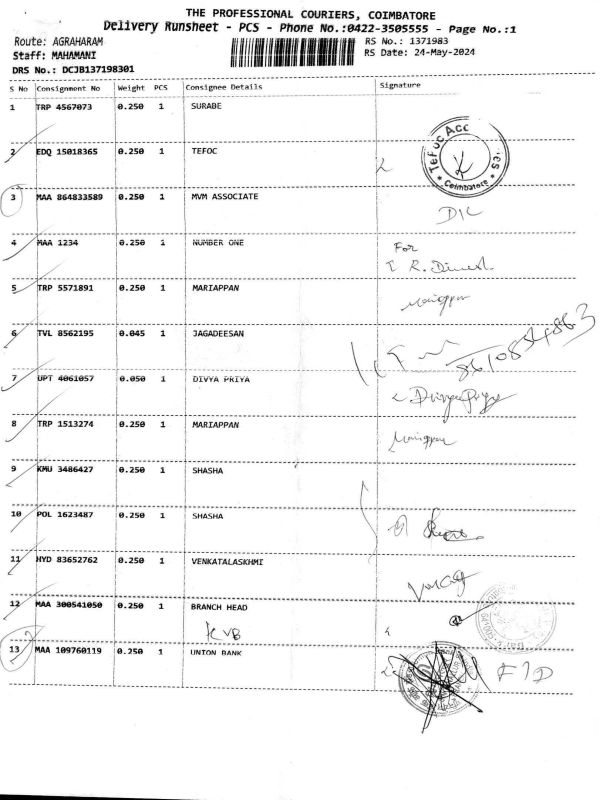 THE PROFESSIONAL COURIERS, COIMBATORE
Delivery Runsheet - PCS - Phone No.:0422-3505555 - Page No.:1
Route: AGRAHARAM RS No.: 1371983
Staff: MAHAMANI RS Date: 24-May-2024
DRS No.: DCJB137198301
S No Consignment No Weight PCS Consignee Details Signature
1 TRP 4567073 0.250 1 SURABE
2 EDQ 15018365 0.250 1 TEFOC
TeFoc Acc
Coimbatore
3 MAA 864833589 0.250 1 MVM ASSOCIATE
D/L
4 MAA 1234 0.250 1 NUMBER ONE For
R. Dinesh
5 TRP 5571891 0.250 1 MARIAPPAN Mariappan
6 TVL 8562195 0.045 1 JAGADEESAN 8610854863
7 UPT 4061057 0.050 1 DIVYA PRIYA Divyapriya
8 TRP 1513274 0.250 1 MARIAPPAN Mariappan
9 KMU 3486427 0.250 1 SHASHA
10 POL 1623487 0.250 1 SHASHA
11 HYD 83652762 0.250 1 VENKATALASKHMI
12 MAA 300541050 0.250 1 BRANCH HEAD
KVB
13 MAA 109760119 0.250 1 UNION BANK